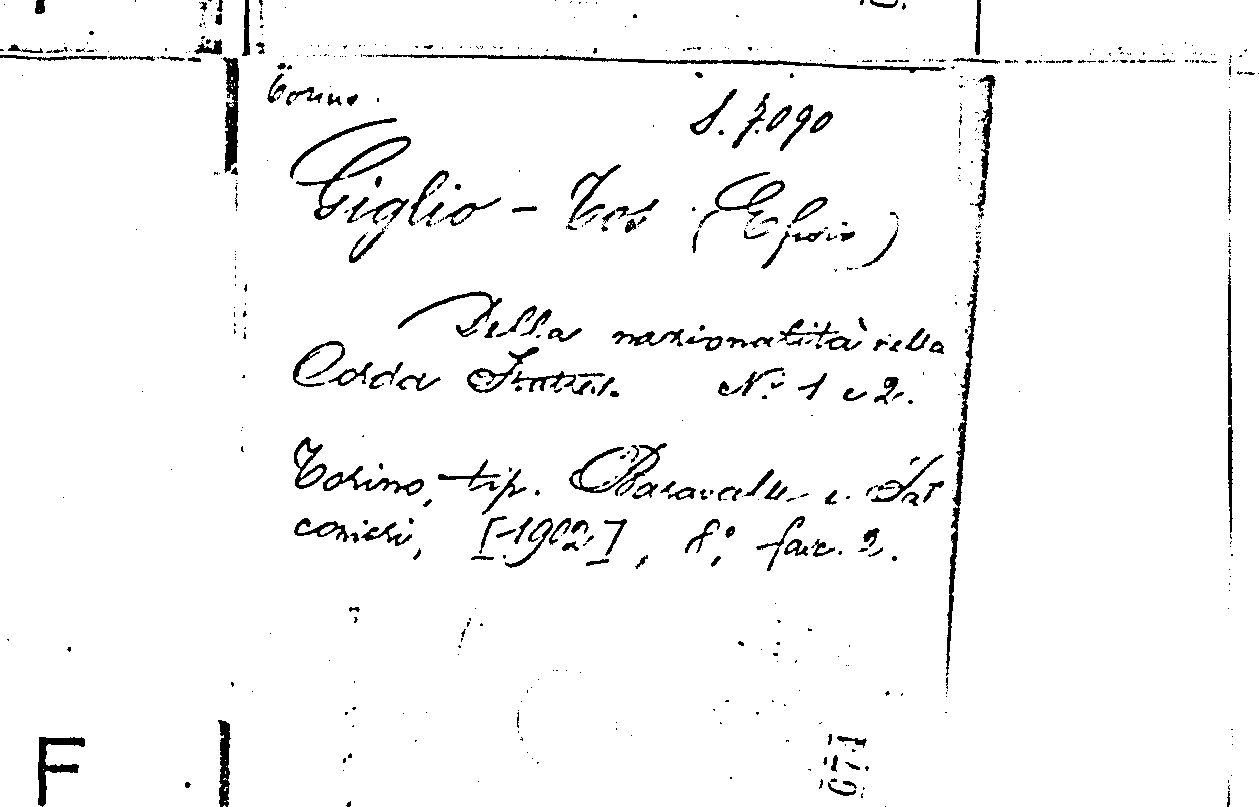 Torino.
S. 7.090
Giglio - Tos (Efisio)
Della nazionalità nella
Corda Fratres. N.º 1 e 2.
Torino, tip. Baravalle e Fal
conieri, [1902], 8º, fasc. 2.
F
671